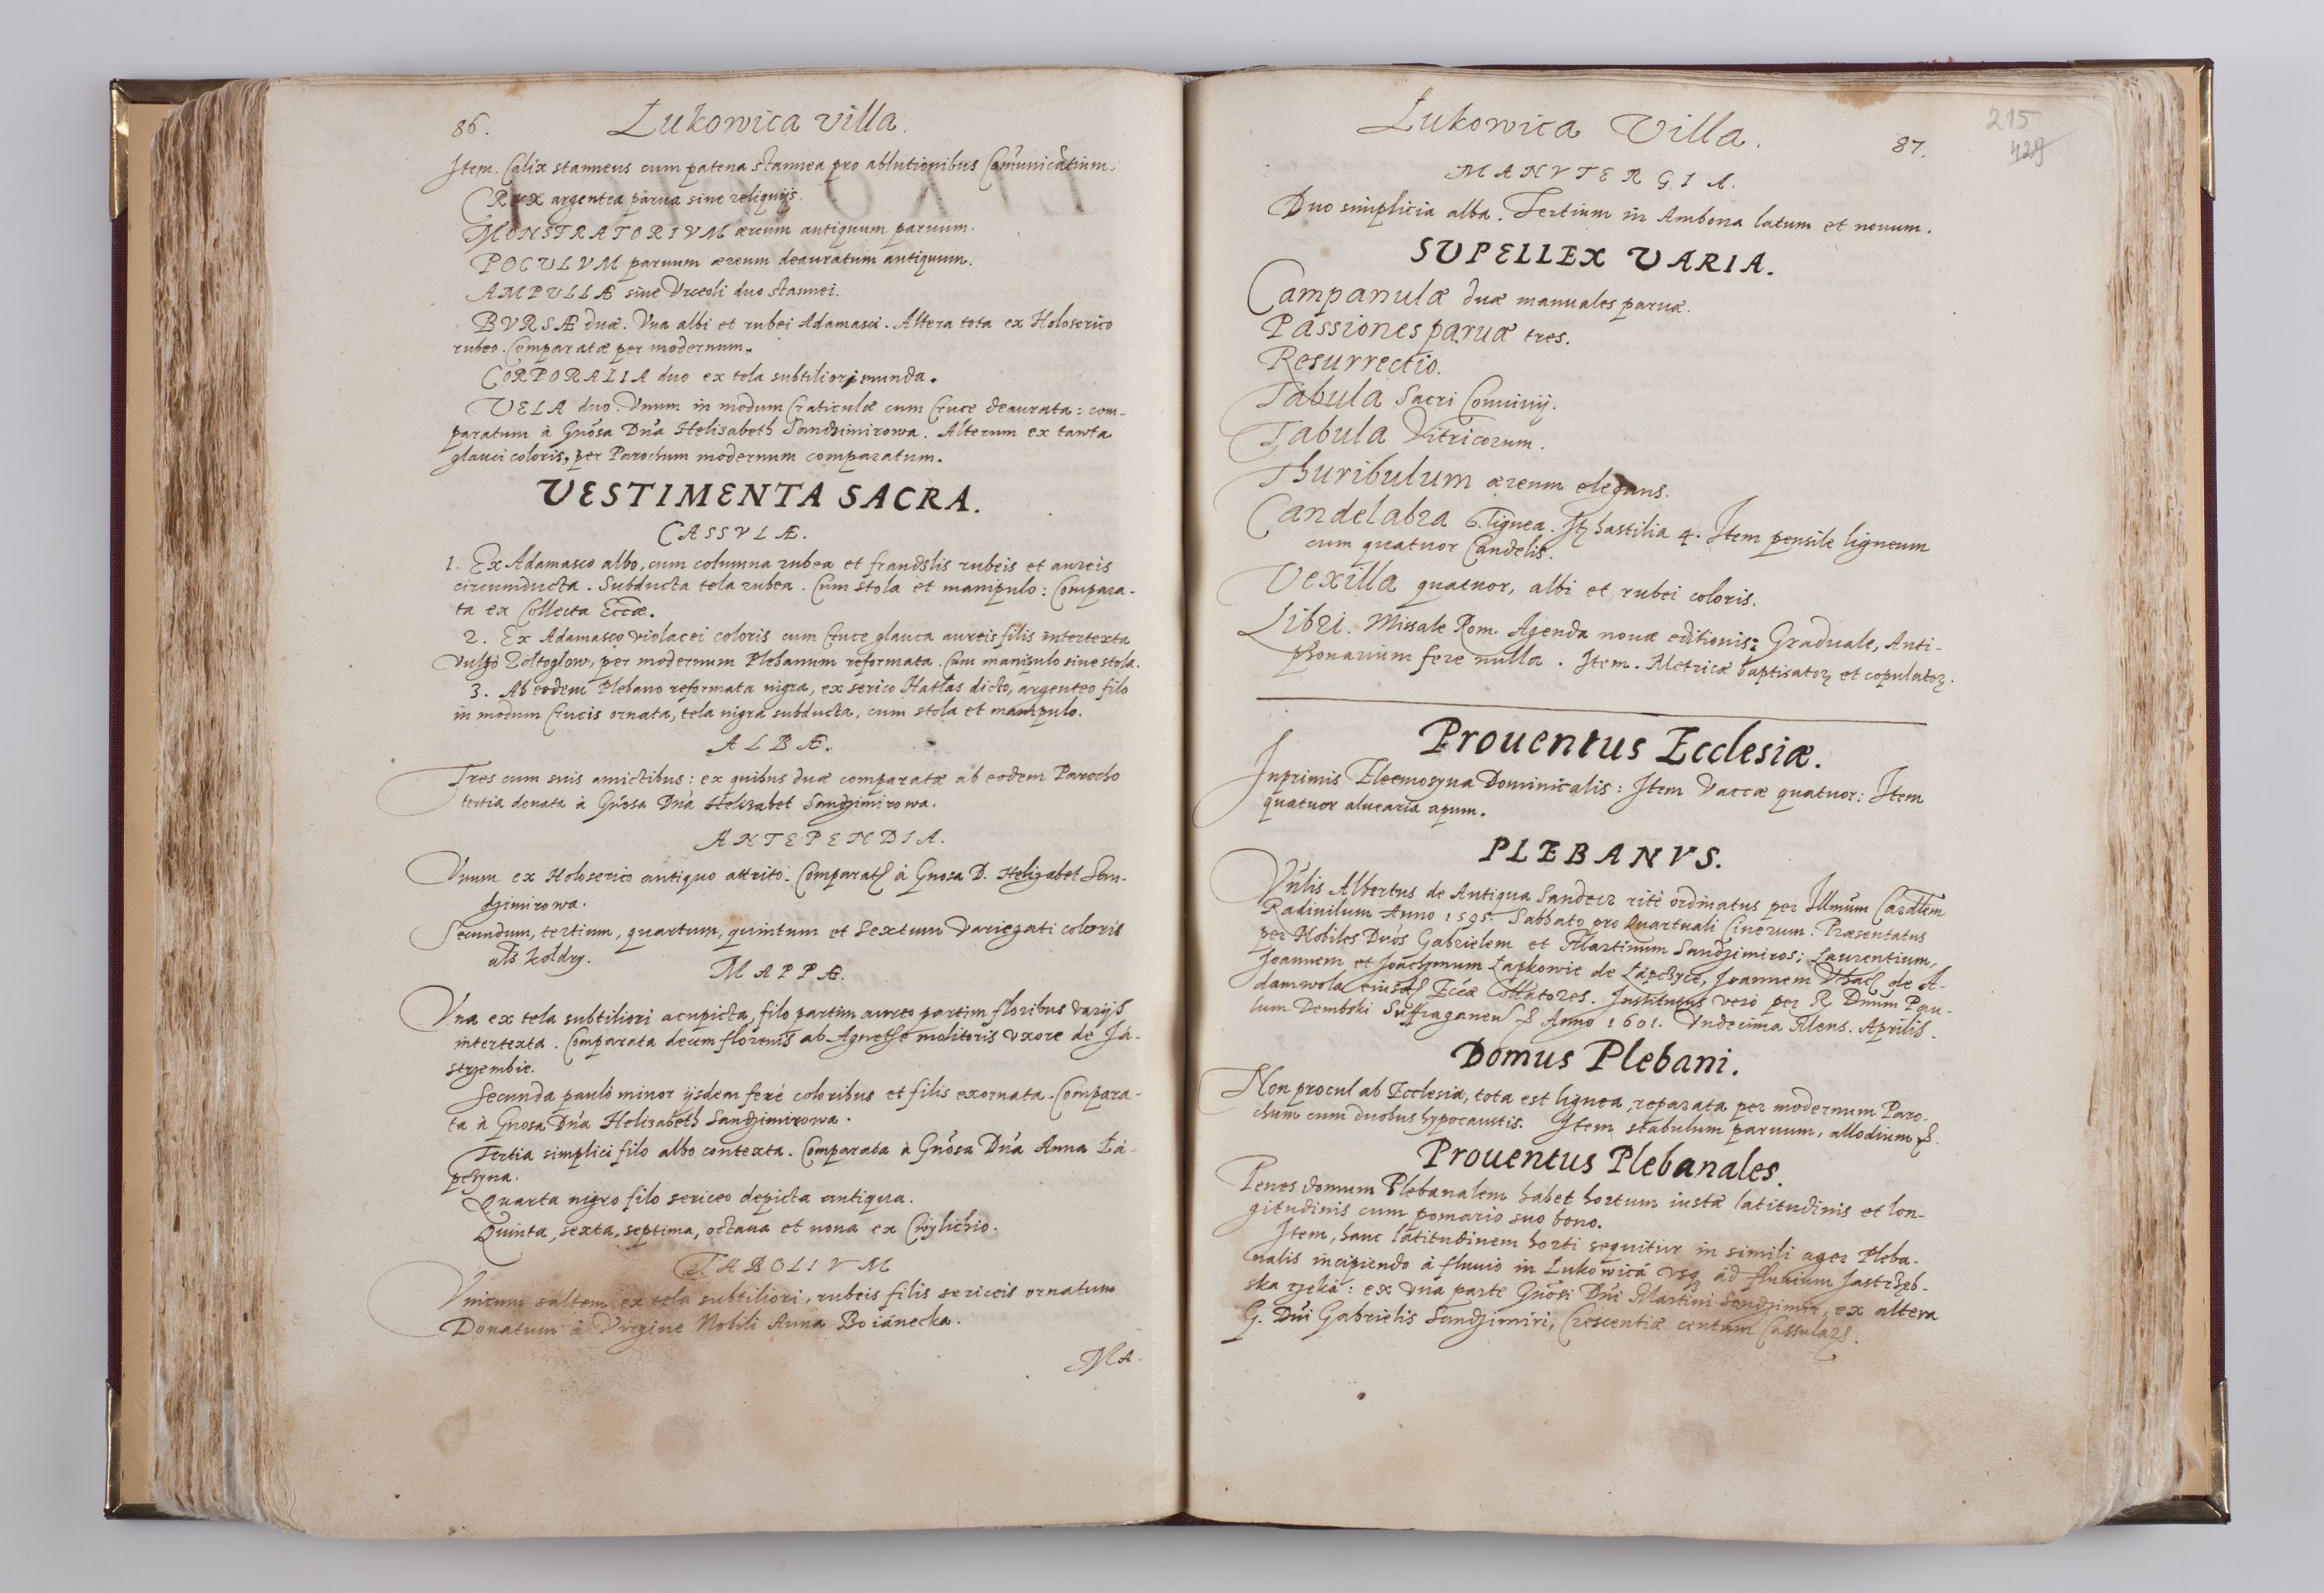 86.
Łukowica villa.
Item. Calix stanneus cum patena stannea pro ablutionibus Com̃unicãtium.
CRUX argentea parua sine reliquijs.
MONSTRATORIVM æreum antiquum paruum.
POCVLVM paruum æreum deauratum antiquum.
AMPVLLÆ siue Vrceoli duo stannei.
BVRSÆ duæ. Vna albi et rubei Adamasci. Altera tota ex Holoserico
rubeo. Comparatæ per modernum.
CORPORALIA duo ex tela subtiliori munda.
VELA duo. Vnum in modum Craticulæ cum Cruce deaurata: com-
paratum à Gnõsa Dnã Helisabeth Sandzimirowa. Alterum ex tawta
glauci coloris, per Parochum modernum comparatum.
VESTIMENTA SACRA.
CASSVLÆ.
1. Ex Adamasco albo, cum columna rubea et frandslis rubeis et aureis
circumducta. Subducta tela rubea. Cum stola et manipulo: Compara-
ta ex Collecta Eccæ.
2. Ex Adamasco violacei coloris cum Cruce glauca aureis filis intertexta
vulgò Zoltogłow, per modernum Plebanum reformata. Cum manipulo sine stola.
3. Ab eodem Plebano reformata nigra, ex serico Hatłas dicto, argenteo filo
in modum Crucis ornata, tela nigra subducta, cum stola et manipulo.
ALBÆ.
Tres cum suis amictibus: ex quibus duæ comparatæ ab eodem Parocho
tertia donata à Gnõsa Dnã Helizabet Sandzimirowa.
ANTEPENDIA.
Vnum ex Holoserico antiquo attrito. Comparatꝭ à Gnosa D. Helizabet San-
dzimirowa.
Secundum, tertium, quartum, quintum et Sextum Variegati coloris
als kołdry.
MAPPÆ.
Vna ex tela subtiliori acupicta, filo partim aureo partim floribus varijs
intertexta. Comparata decem florenis ab Agnethe molitoris vxore de Ja-
strzembie.
Secunda paulò minor ijsdem ferè coloribus et filis exornata. Compara-
ta à Gnosa Dnã Helizabeth Sandzimirowa.
Tertia simplici filo albo contexta. Comparata à Gnõsa Dnã Anna Łá-
pczyna.
Quarta nigro filo sericeo depicta antiqua.
Quinta, sexta, septima, octaua et nona ex Cwylichio.
TABOLIVM
Vnicum saltem ex tela subtiliori, rubeis filis sericeis ornatum
Donatum à Virgine Nobili Anna Boiánecka.
MA.
Łukowica Villa.
87.
215
429
MANVTERGIA.
Duo simplicia alba. Tertium in Ambona latum et nouum.
SUPELLEX VARIA.
Campanulæ duæ manuales paruæ.
Passiones paruæ tres.
Resurrectio.
Tabula Sacri Conuiuij.
Tabula Vitricorum.
Thuribulum æreum elegans.
Candelabra 6. lignea. Itꝫ hastilia 4. Item pensile ligneum
cum quatuor Candelis.
Vexilla quatuor, albi et rubei coloris.
Libri. Missale Rom. Agenda nouæ editionis: Graduale, Anti-
phonarium fere nulla. Item. Metricæ baptisatoꝝ et copulatoꝝ.
Prouentus Ecclesiæ.
Inprimis Eleemosyna Dominicalis: Item Vaccæ quatuor: Item
quatuor aluearia apum.
PLEBANVS.
Vnlis Albertus de Antiqua Sandecz ritè ordinatus per Illmũm Cardlem
Radiuilum Anno 1595. Sabbato pro Quartuali Cinerum. Præsentatus
per Nobiles Dnõs Gabrielem et Martinum Sandzimiros; Laurentium,
Joannem et Joachimum Łapkowie de Łápczyce, Joannem de A-
damwola eiusdꝭ Eccæ Collatores. Institutus verò per R Dnum Pau-
lum Dembski Suffraganeũ & Anno 1601. Vndecima Mens. Aprilis.
Domus Plebani.
Non procul ab Ecclesia, tota est lignea, reparata per modernum Paro-
chum cum duobus hypocaustis. Item stabulum paruum, allodium &.
Prouentus Plebanales.
Penes domum Plebanalem habet hortum iustæ latitudinis et lon-
gitudinis cum pomario suo bono.
Item, hanc latitudinem horti sequitur in simili ager Pleba-
nalis incipiendo à fluuio in Lukowicá vsqꝫ ad fluuium Jastrzęb-
ska rzeká: ex vna parte Gnõsi Dni Martini Sendzimir, ex altera
G. Dni Gabrielis Sandzimiri, Crescentiæ centum Cassularꝫ.